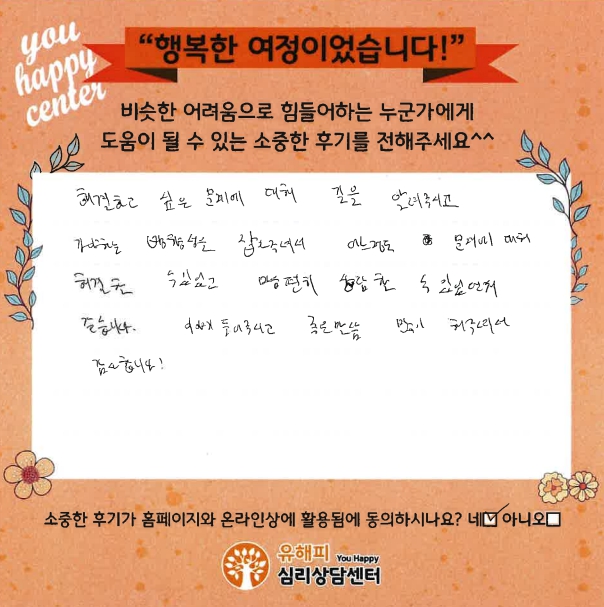 you
happy
center
“행복한 여정이었습니다!”
비슷한 어려움으로 힘들어하는 누군가에게
도움이 될 수 있는 소중한 후기를 전해주세요^^
해결하고 싶은 문제에 대해 길을 알려주시고
방향성을 잡아주셔서 어느정도 문제에 대해
해결할 수 있었고 마음 편히 상담할 수 있었던거
같습니다. 이야기 들어주시고 좋은말씀 많이 해주셔서
감사합니다!
소중한 후기가 홈페이지와 온라인상에 활용됨에 동의하시나요? 네☑ 아니오☐
유해피 You Happy
심리상담센터